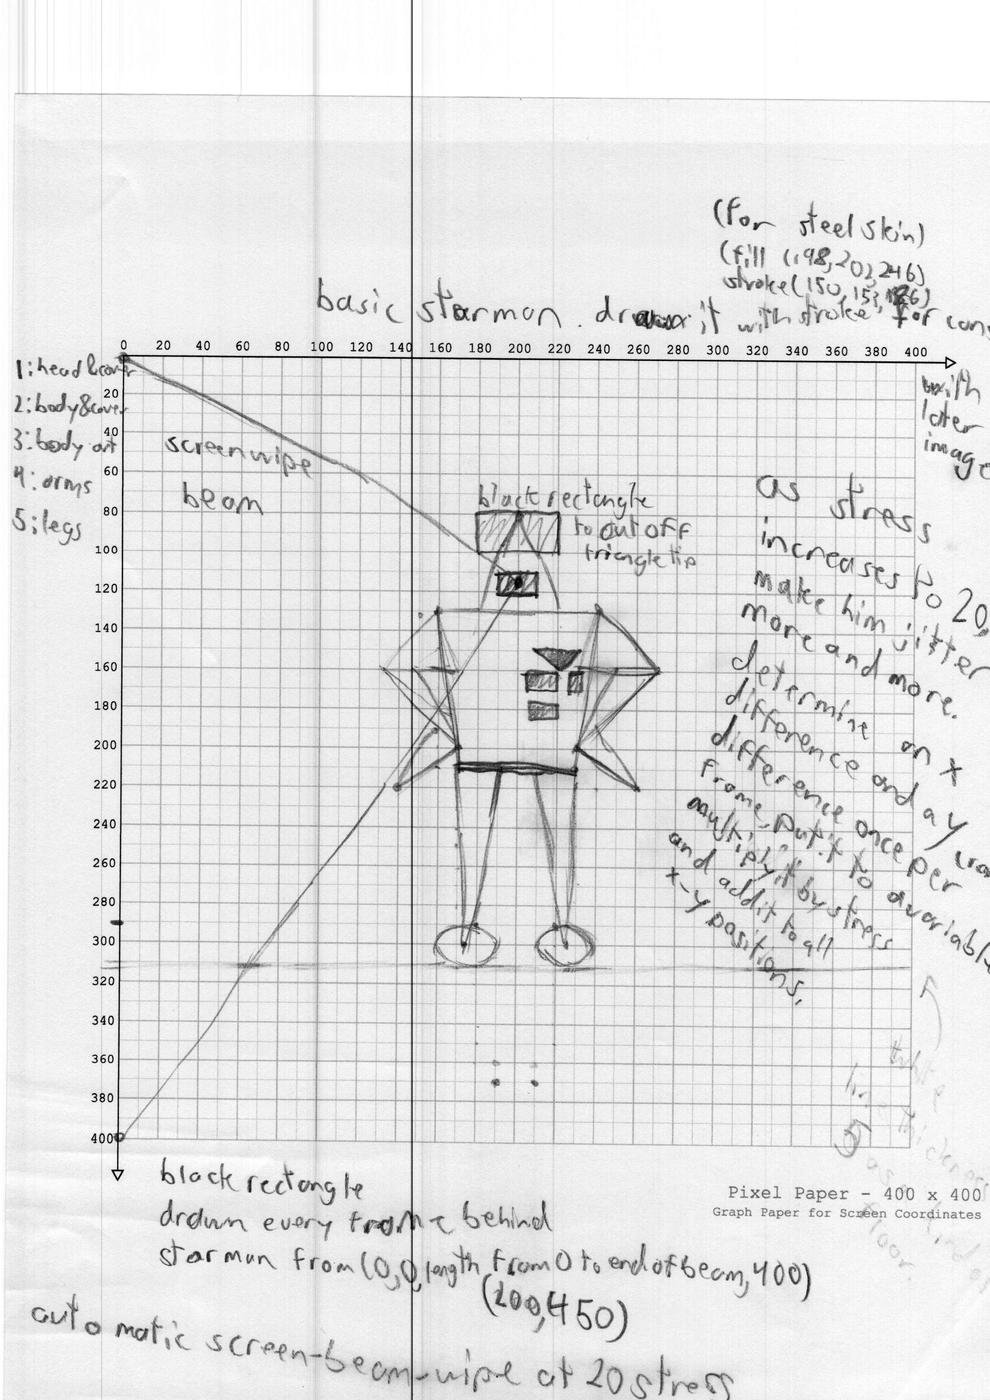 (for steel skin)
(fill (198,202,246)
stroke(150,153,186)
basic starman. draw it with stroke for
0 20 40 60 80 100 120 140 160 180 200 220 240 260 280 300 320 340 360 380 400
with
later
image
1: head & cover
2: body & cover
3: body art
4: arms
5: legs
20
40
60
80
100
120
140
160
180
200
220
240
260
280
300
320
340
360
380
400
screenwipe
beam
black rectangle
to cut off
triangle tip
as stress
increases to 20,
make him jitter
more and more.
determine an x
difference and a y
difference once per
frame, put it to a variable
multiply it by stress
and add it to all
x-y positions,
white
line thickness
5
as
floor.
Pixel Paper - 400 x 400
Graph Paper for Screen Coordinates
black rectangle
drawn every frame behind
starman from (0,0, length from 0 to end of beam, 400)
(200,450)
automatic screen-beam-wipe at 20 stress